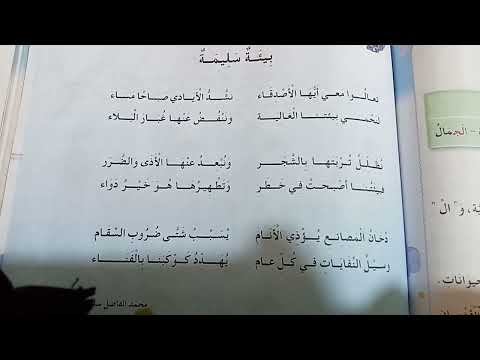 بِيئَةٌ سَلِيمَةٌ
تَعَالَوْا مَعِي أَيُّهَا الْأَصْدِقَاء نَشُدُّ الْأَيَادِي صَبَاحًا مَسَاء
لِنَحْمِي بِيئَتَنَا الْغَالِية وَنَنْفُضَ عَنْهَا غُبَارَ الْبَلَاء
نُظَلِّلُ تُرْبَتَهَا بِالشَّجَر وَنُبْعِدُ عَنْهَا الْأَذَى وَالضَّرَر
فَبِيئَتُنَا أَصْبَحَتْ فِي خَطَر وَتَطْهِيرُهَا هُوَ خَيْرُ دَوَاء
دُخَانُ الْمَصَانِعِ يُؤْذِي الْأَنَام يُسَبِّبُ شَتَّى ضُرُوبِ السَّقَام
وَسَيْلُ النُّفَايَاتِ فِي كُلِّ عَام يُهَدِّدُ كَوْكَبَنَا بِالْفَنَاء
محمد الفاضل
- الْجَمَالُ
وَ" الْ "
حيوانات.